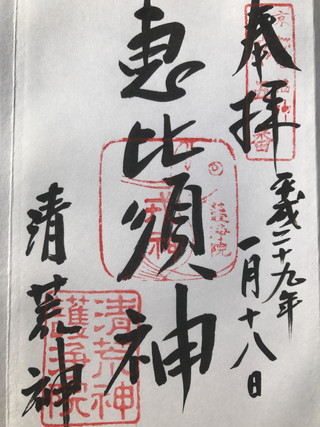 奉拝
平成二十九年
一月十八日
恵比須神
清荒神
清荒神
護浄院